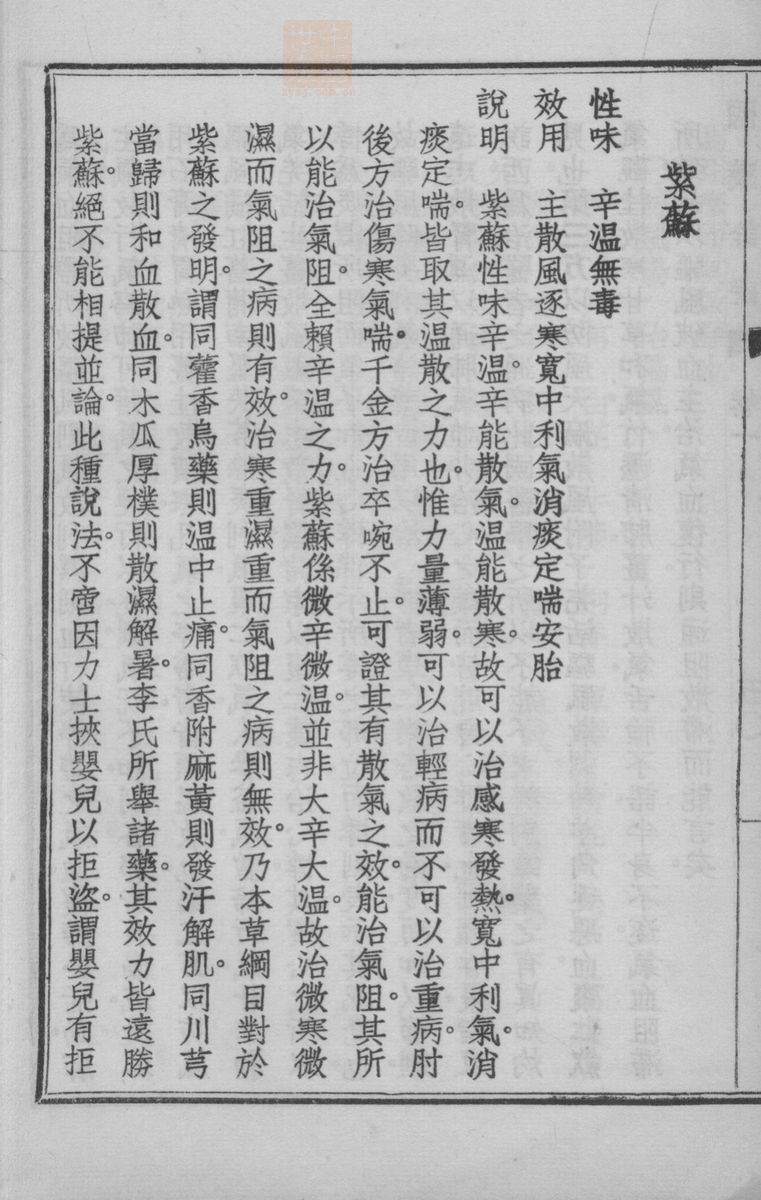 紫蘇
性味　辛温無毒
效用　主散風逐寒寬中利氣消痰定喘安胎
說明　紫蘇性味辛温。辛能散氣。温能散寒。故可以治感寒發熱。寬中利氣。消
痰定喘。皆取其温散之力也。惟力量薄弱。可以治輕病而不可以治重病。肘
後方治傷寒氣喘。千金方治卒啘不止。可證其有散氣之效。能治氣阻。其所
以能治氣阻。全賴辛温之力。紫蘇係微辛微温。並非大辛大温。故治微寒微
濕而氣阻之病則有效。治寒重濕重而氣阻之病則無效。乃本草綱目對於
紫蘇之發明。謂同藿香烏藥則温中止痛。同香附麻黃則發汗解肌。同川芎
當歸則和血散血。同木瓜厚樸則散濕解暑。李氏所舉諸藥。其效力皆遠勝
紫蘇。絕不能相提並論。此種說法。不啻因力士挾嬰兒以拒盜。謂嬰兒有拒